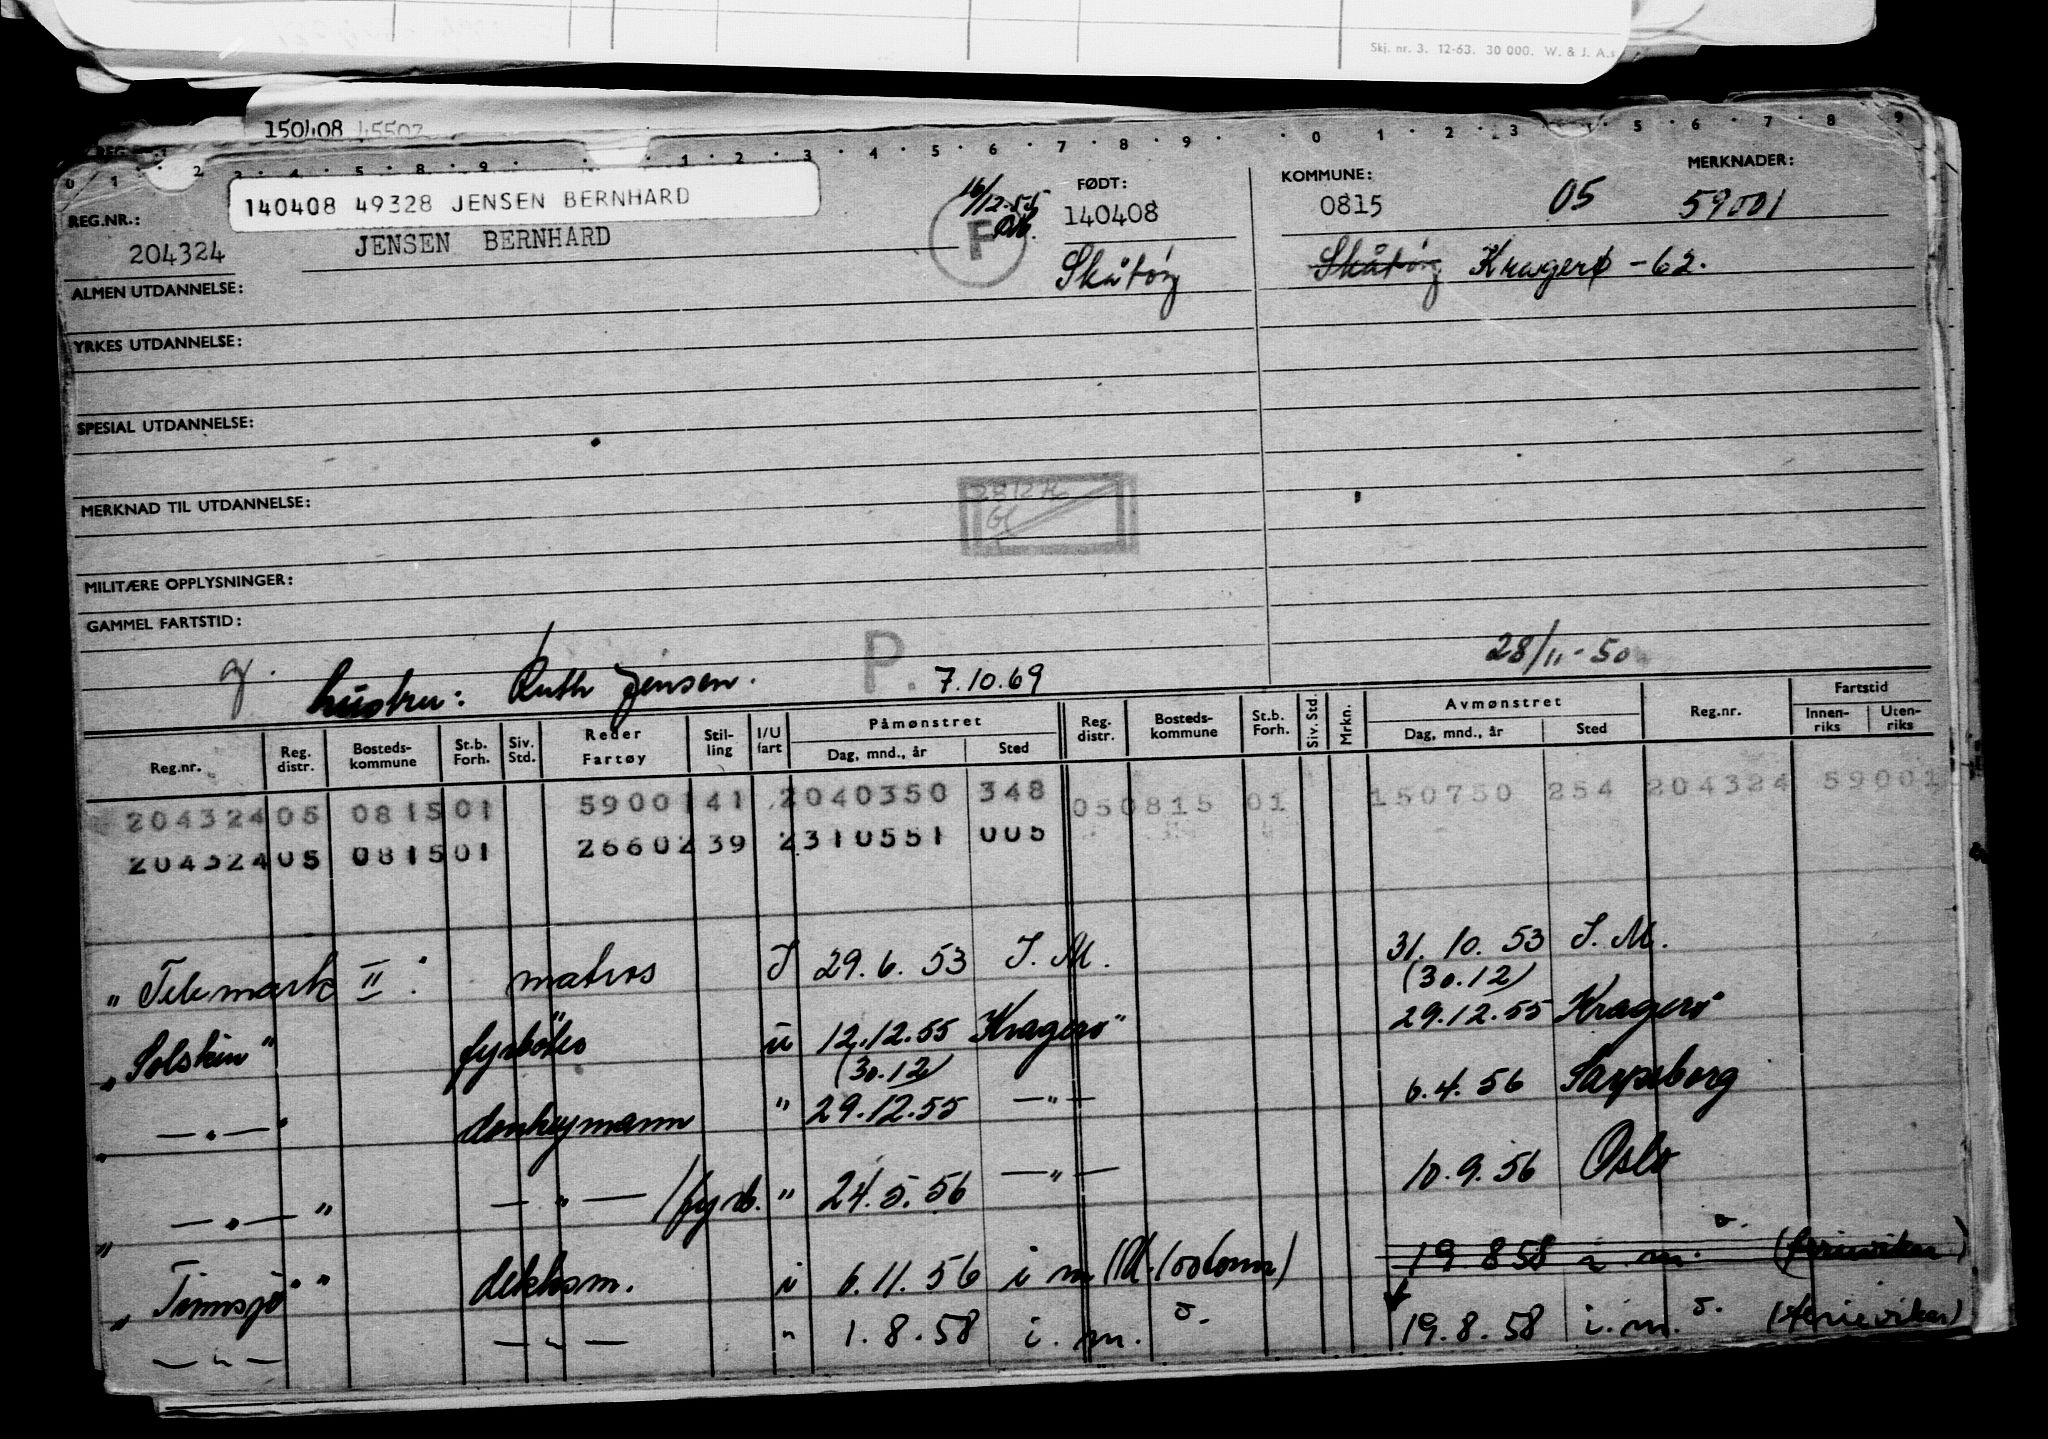 Skj. nr. 3. 12-63. 30 000. W. & J. A.s
150408 45502
0 1 2 3 4 5 6 7 8 9
140408 49328 JENSEN BERNHARD
REG.NR.:
204324 JENSEN BERNHARD
16/12-55
F
FØDT:
140408
Skåtøy
KOMMUNE:
0815 05
MERKNADER:
59001
Skåtøy Kragerø -62.
ALMEN UTDANNELSE:
YRKES UTDANNELSE:
SPESIAL UTDANNELSE:
MERKNAD TIL UTDANNELSE:
MILITÆRE OPPLYSNINGER:
GAMMEL FARTSTID:
g. hustru: Ruth Jensen. P. 7.10.69
28/11-50
Reg.nr. Reg. distr. Bosteds-kommune St.b. Forh. Siv. Std. Reder Fartøy Stil-ling I/U fart Påmønstret Dag, mnd., år Sted Reg. distr. Bosteds-kommune St.b. Forh. Siv. Std. Mrkn. Avmønstret Dag, mnd., år Sted Reg.nr. Fartstid Innen-riks Uten-riks
204324 05 0815 01 59001 41 2 040350 348 05 0815 01 150750 254 204324 59001
204324 05 0815 01 26602 39 2 310551 005
"Telemark II". matros I 29.6.53 I.M. 31.10.53 I.M.
(30.12)
"Solskin" fyrbøter u 12.12.55 Kragerø 29.12.55 Kragerø
(30.12)
" —"— " donkeymann " 29.12.55 —"— 6.4.56 Sarpsborg
" —"— " —"— /fyrb. " 24.5.56 —"— 10.9.56 Oslo
"Tinnsjø" dekksm. i 6.11.56 i m 19.8.58 i. m. (ferievikar)
—"— —"— " 1.8.58 i. m. 19.8.58 i. m. (ferievikar)